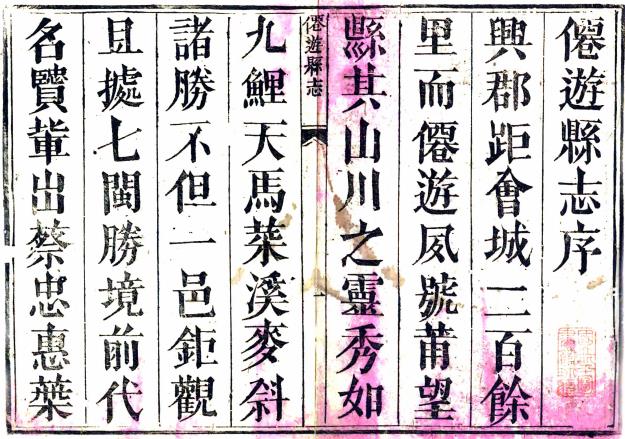 僊遊縣志序
興郡距會城二百餘
里而僊遊夙號莆望
縣其山川之靈秀如
僊遊縣志
一
九鯉天馬菜溪麥斜
諸勝不但一邑鉅觀
且㨿七閩勝境前代
名贒軰出蔡忠惠葉